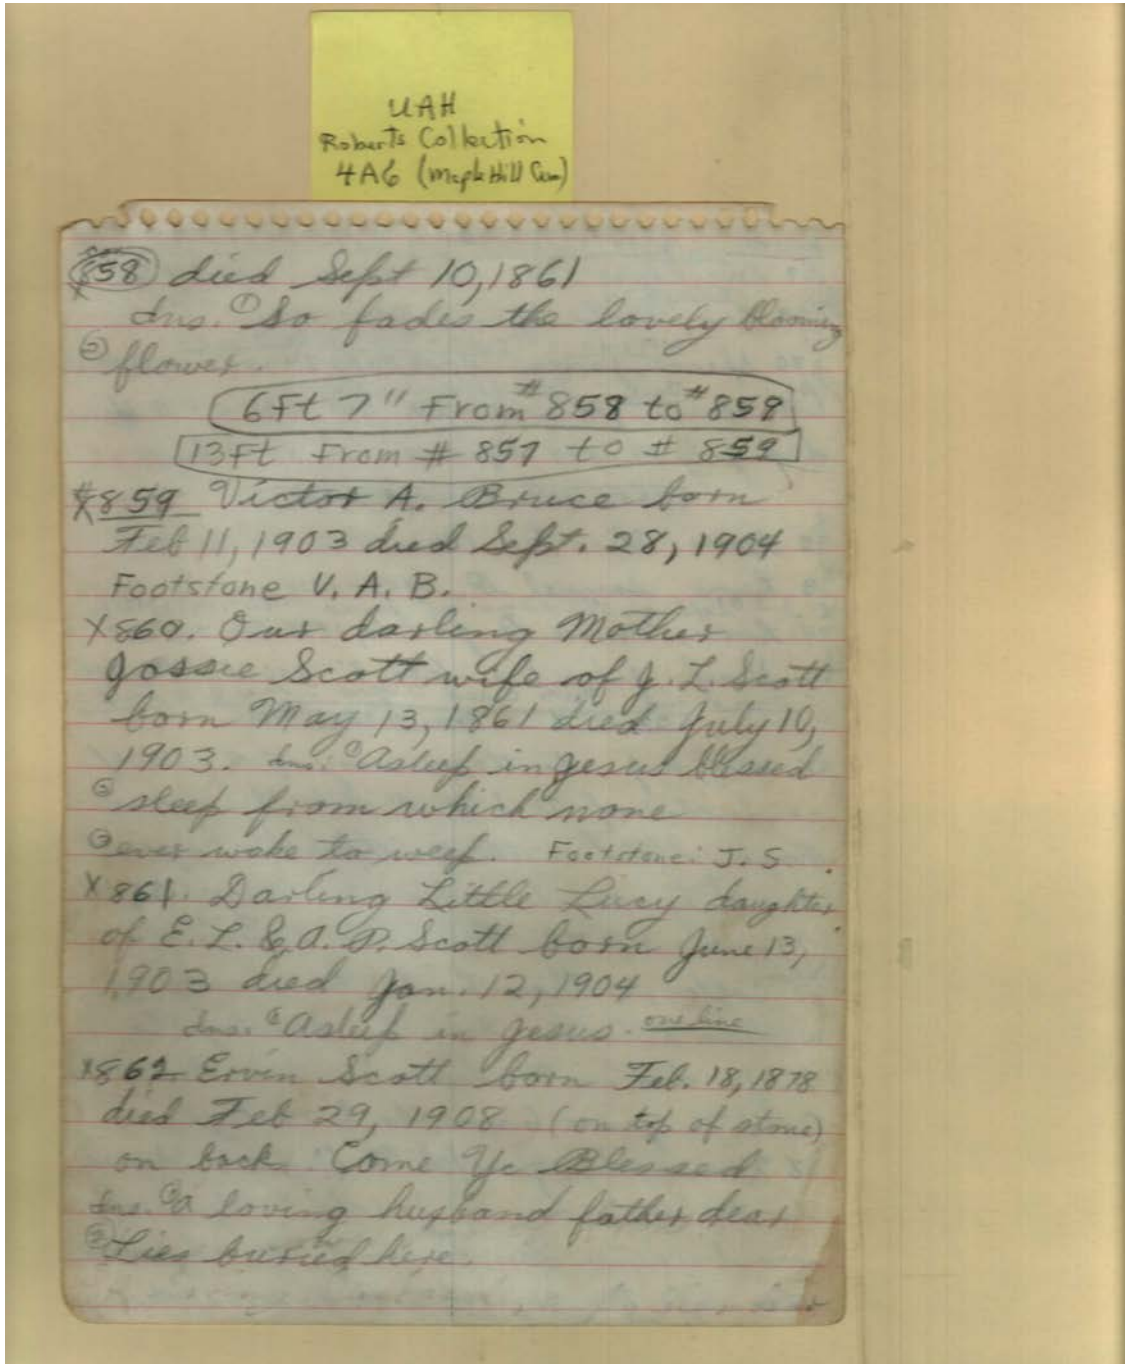 UAH
Roberts Collection
4A6 (Maple Hill Cem)
858 died Sept 10, 1861
Ins. ① So fades the lovely blooming
② flower.
6Ft 7" From #858 to #859
13Ft From # 857 to # 859
#859 Victor A. Bruce born
Feb 11, 1903 died Sept. 28, 1904
Footstone V. A. B.
X860. Our darling Mother
Jossie Scott wife of J. L. Scott
born May 13, 1861 died July 10,
1903. Ins. ① Asleep in Jesus blessed
② sleep from which none
③ ever wake to weep. Footstone: J. S.
X861. Darling Little Lucy daughter
of E. L. & A. P. Scott born June 13,
1903 died Jan. 12, 1904
Ins. ① Asleep in Jesus. one line
X862 Ervin Scott born Feb. 18, 1878
died Feb 29, 1908 (on top of stone)
on back Come Ye Blessed
Ins. ① A loving husband father dear
② Lies buried here.